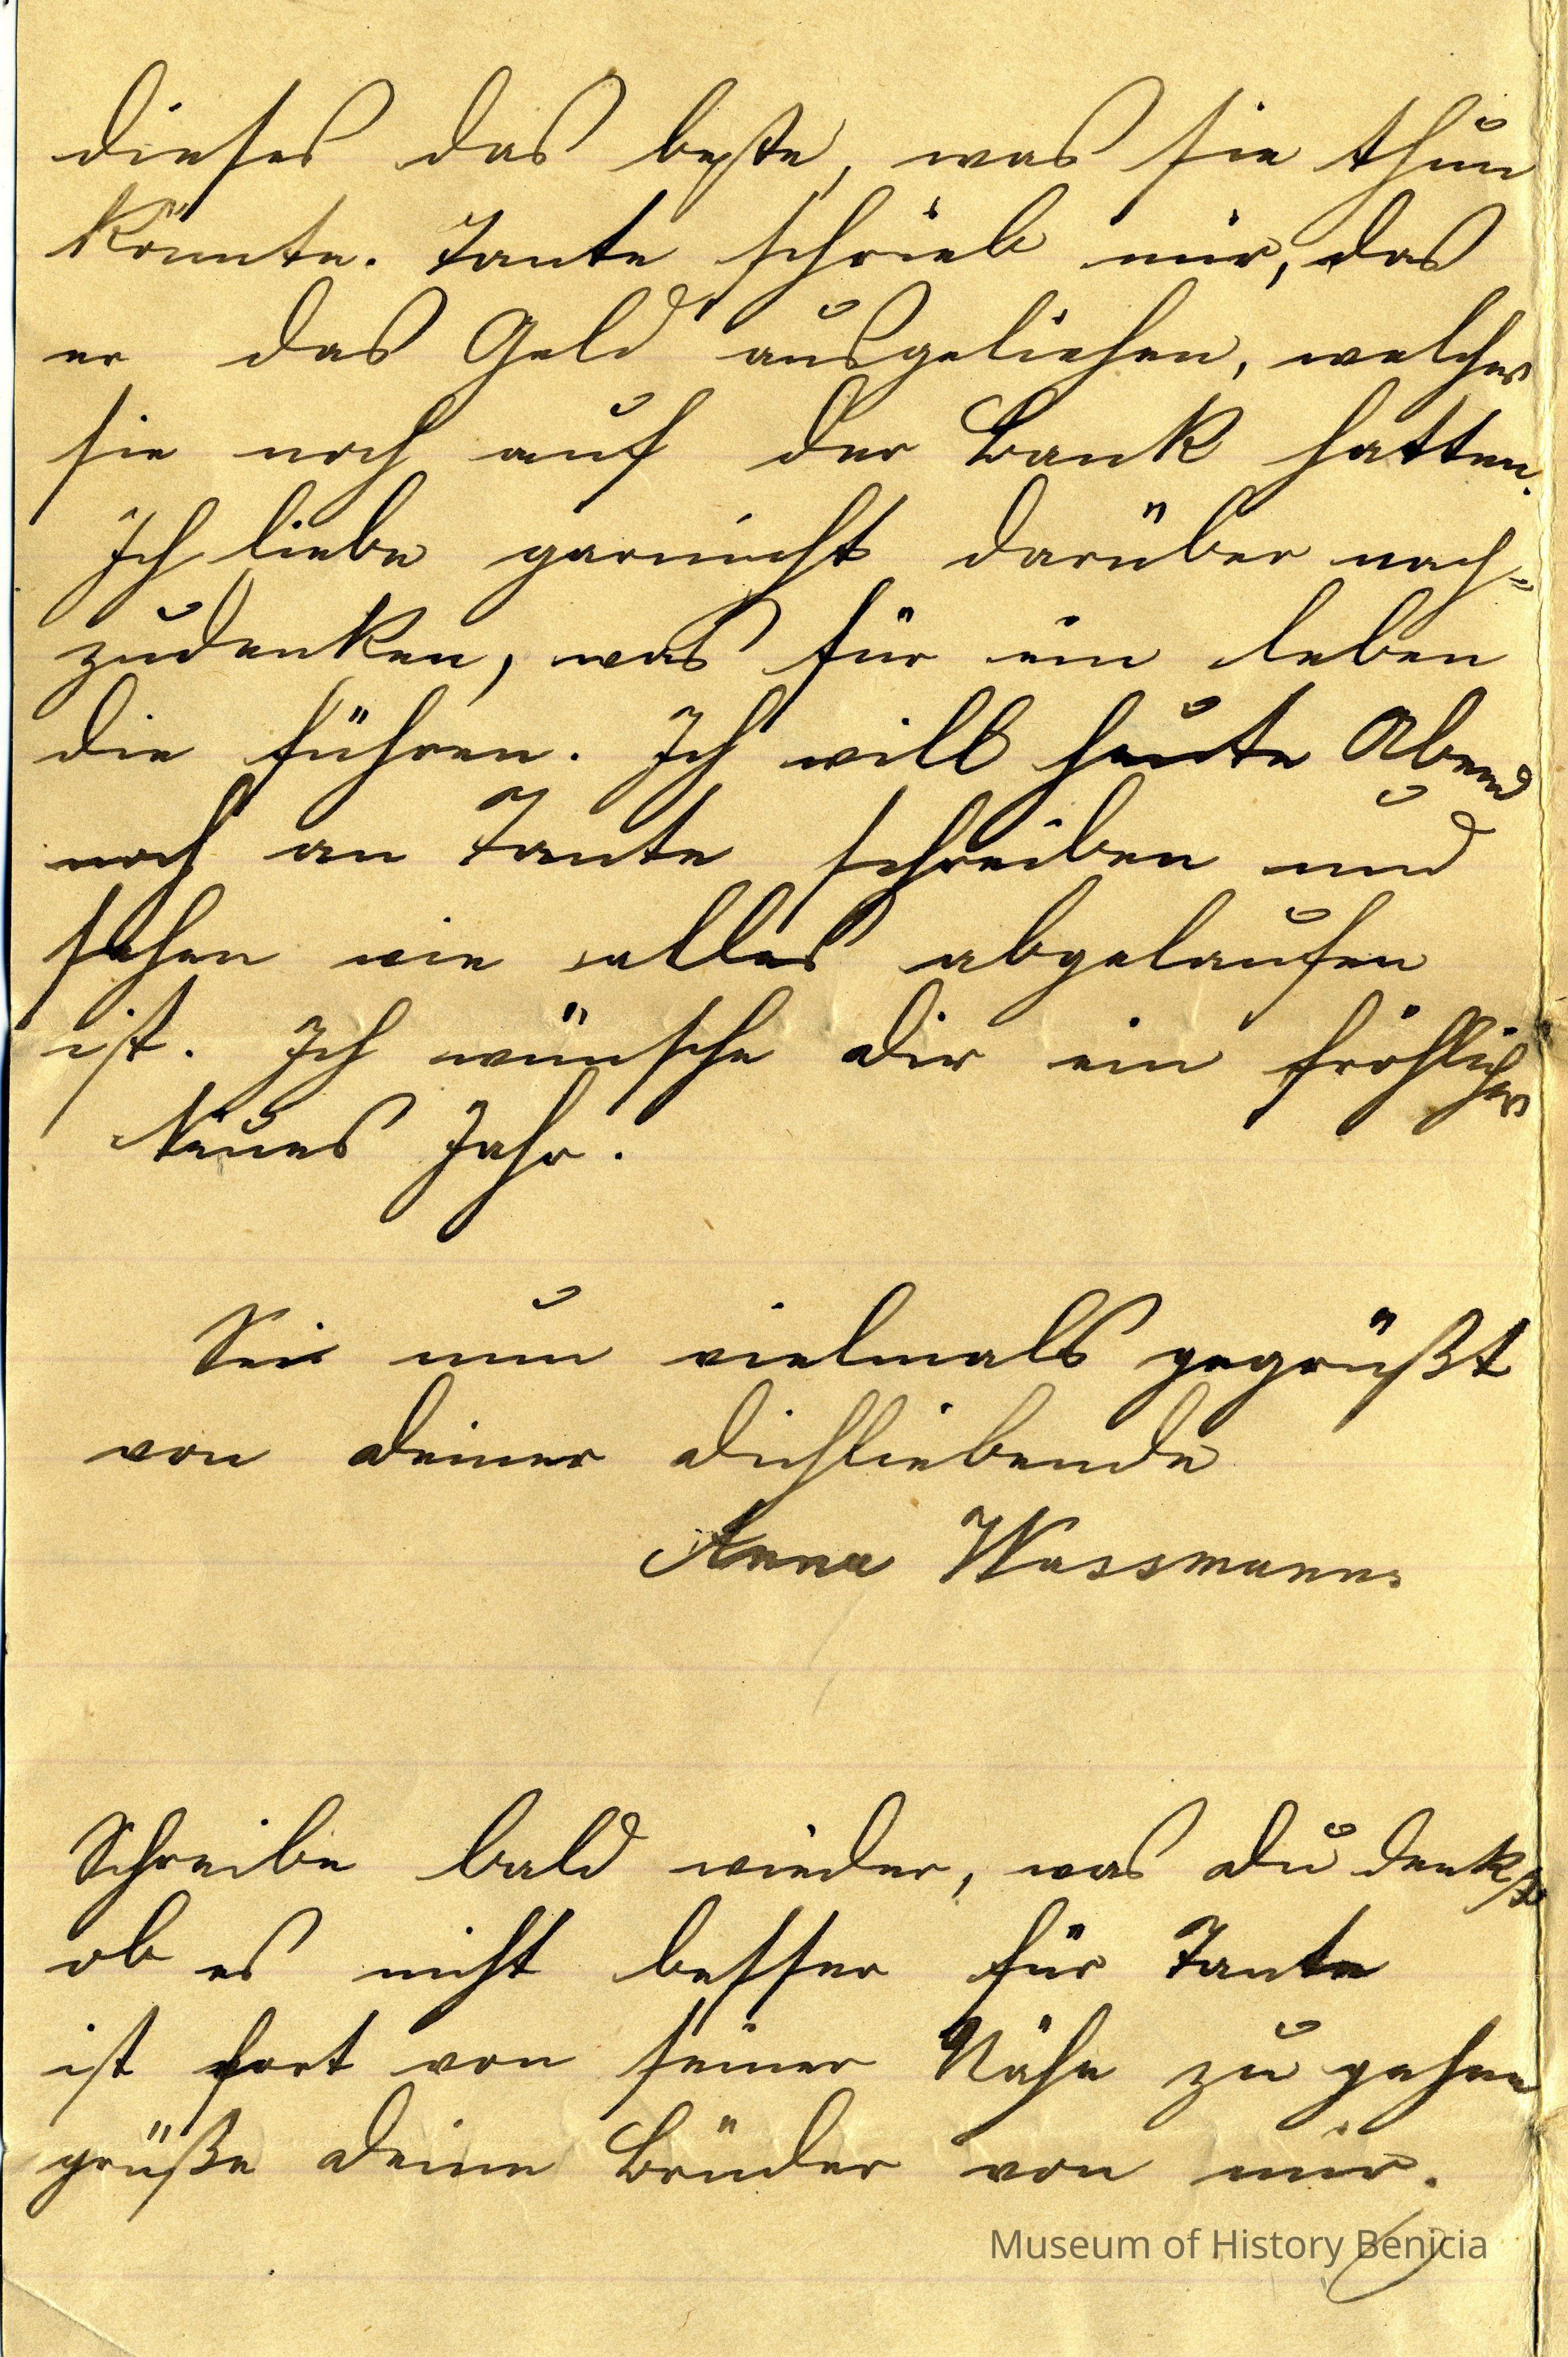 dieses das beste, was sie thun
könnte. Tante schrieb mir, das
er das Geld ausgeliehen, welches
sie noch auf der Bank hatten.
Ich liebe garnicht darüber nach=
zudenken, was für ein leben
die führen. Ich will heute Abend
noch an Tante schreiben und
sehen wie alles abgelaufen
ist. Ich wünsche dir ein fröhliches
Neues Jahr.
Sei nun vielmals gegrüßt
von deiner dichliebende
Anna Wassmann.
Schreibe bald wieder, was du denkst
ob es nicht besser für Tante
ist fort von seiner Nähe zu gehen
grüße deine Brüder von mir.
Museum of History Benicia